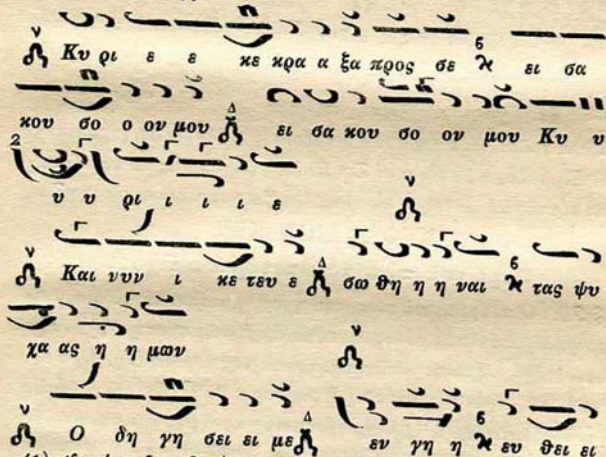 Κυ ρι ε ε κε κρα α ξα προς σε ει σα
κου σο ο ον μου ει σα κου σο ον μου Κυ υ
υ υ ρι ι ι ι ε
Και νυν ι κε τευ ε σω θη η η ναι τας ψυ
χα ας η η μων
Ο δη γη σει ει με εν γη η ευ θει ει